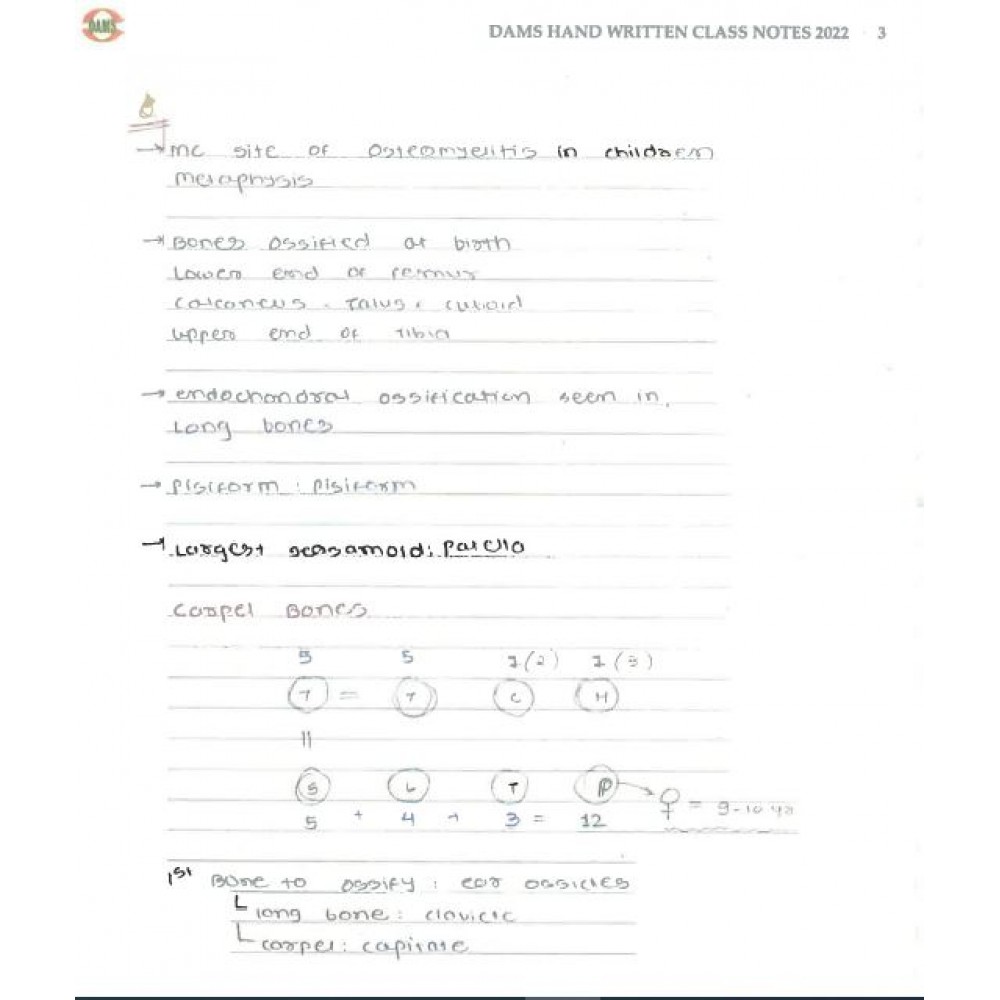 DAMS
DAMS HAND WRITTEN CLASS NOTES 2022 3
→ mc site of osteomyelitis in children
metaphysis
→ Bones ossified at birth
Lower end of femur
calcaneus, Talus, cuboid
upper end of tibia
→ endochondral ossification seen in.
Long bones
→ Pisiform : Pisiform
→ Largest seasamoid: Patella
Carpel Bones
5 5 1(2) 1(3)
T = T C H
||
S L T P → ♀ = 9-10 yr
5 + 4 + 3 = 12
1st Bone to ossify : ear ossicles
long bone : clavicle
carpel : capitate